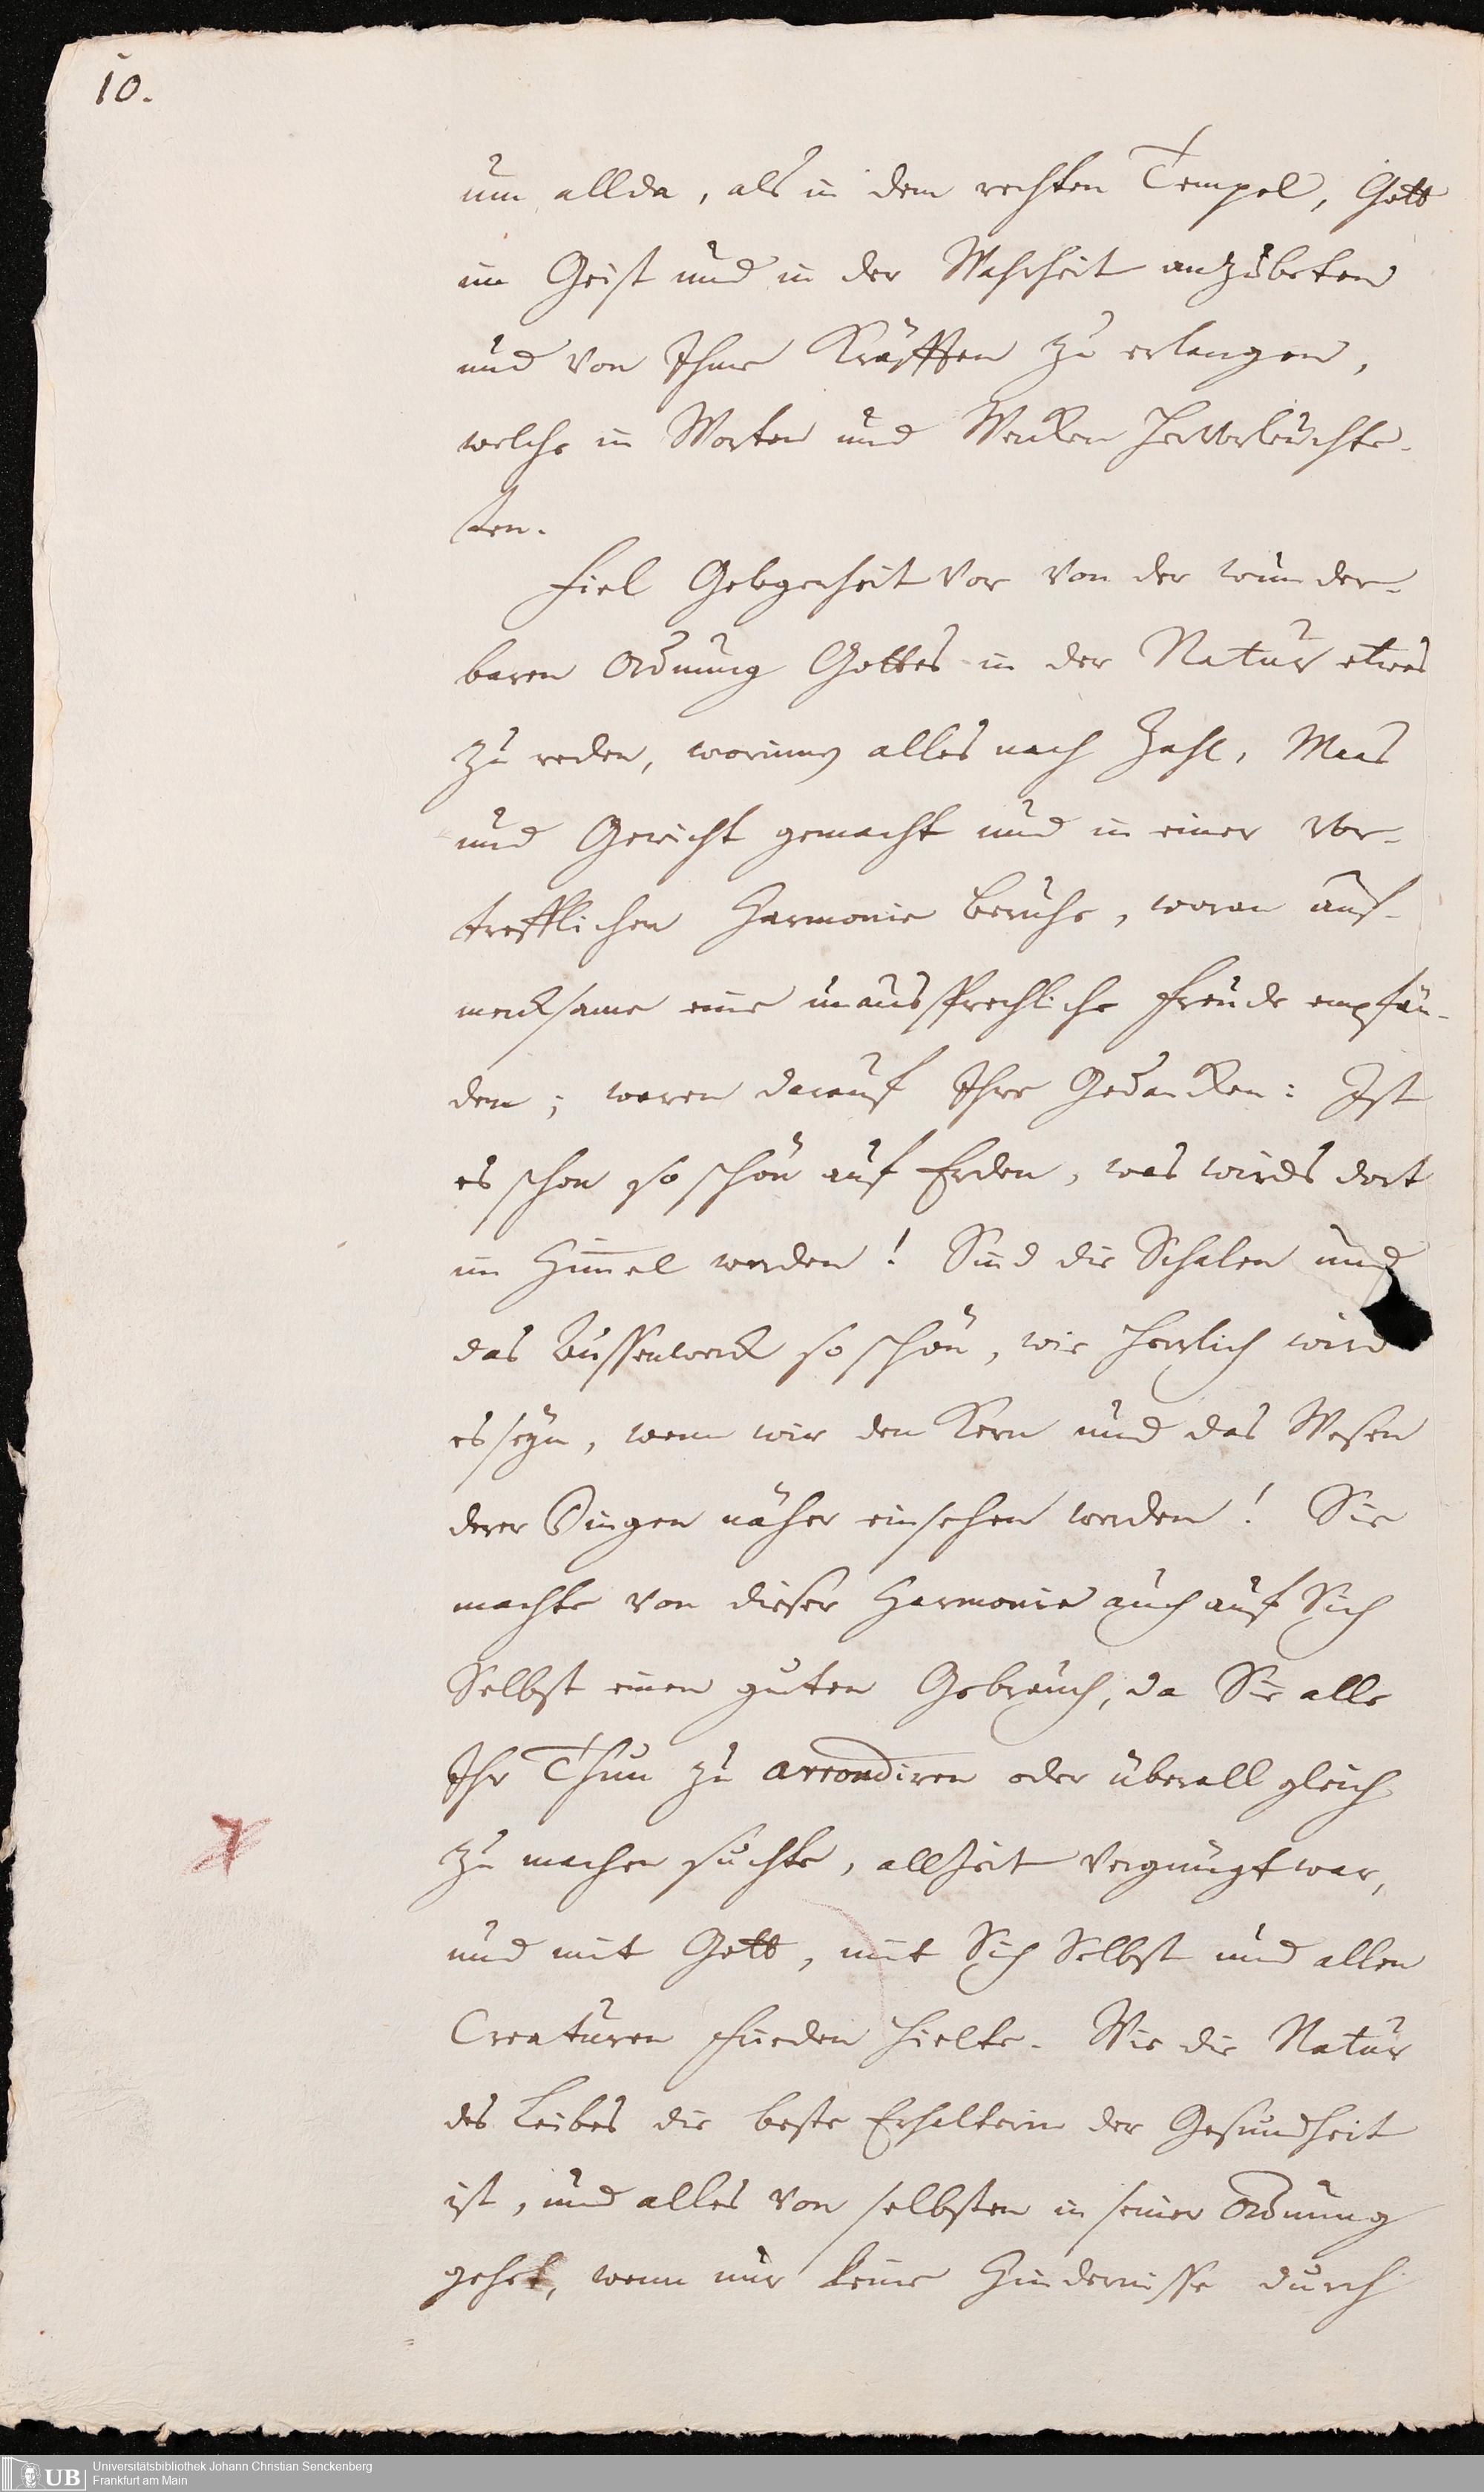 10.
um allda, als in dem rechten Tempel, Gott
im Geist und in der Wahrheit anzubeten
und von Ihme Kräfften zu erlangen,
welche in Worten und Wercken hervorleuchte-
ten.
Fiel Gelegenheit vor von der wunder-
baren Ordnung Gottes in der Natur etwas
zu reden, worinnen alles nach Zahl, Maas
und Gewicht gemacht und in einer vor-
trefflichen Harmonie beruhe, woran auf-
mercksame eine unaussprechliche Freude empfän-
den; waren darauf Ihre Gedancken: Ist
es schon so schön auf Erden, was wirds dort
im Himel werden! Sind die Schalen und
das Aussenwerck so schön, wie herrlich wird
es seyn, wenn wir den Kern und das Wesen
derer Dingen näher einsehen werden! Sie
machte von dieser Harmonie auch auf Sich
Selbst einen guten Gebrauch, da Sie alle
Ihr Thun zu arrondiren oder überall gleich
zu machen suchte, allzeit vergnügt war,
und mit Gott, mit Sich Selbst und allen
Creaturen Frieden hielte. Wie die Natur
des Leibes die beste Erhalterin der Gesundheit
ist, und alles von selbsten in seiner Ordnung
gehet, wenn nur keine Hindernisse durch
UB
Universitätsbibliothek Johann Christian Senckenberg
Frankfurt am Main